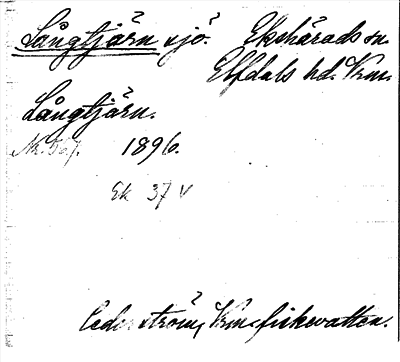 Långtjärn sjö. Ekshärads sn.
Elfdals hd. Krm.
Långtjärn.
1896.
Ek 37 V
Cederström, Krm fiskevatten.